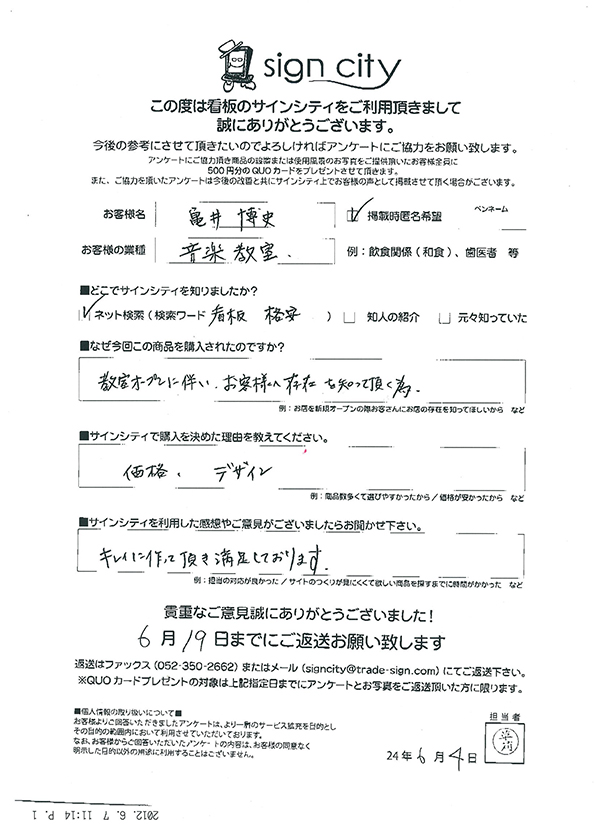 sign city
この度は看板のサインシティをご利用頂きまして
誠にありがとうございます。
今後の参考にさせて頂きたいのでよろしければアンケートにご協力をお願い致します。
アンケートにご協力頂き商品の設置または使用風景のお写真をご提供頂いたお客様全員に
500円分のQUOカードをプレゼントさせて頂きます。
また、ご協力を頂いたアンケートは今後の改善と共にサインシティ上でお客様の声として掲載させて頂く場合がございます。
お客様名 亀井 博史 ✓ 掲載時匿名希望 ペンネーム
お客様の業種 音楽教室. 例:飲食関係(和食)、歯医者 等
■どこでサインシティを知りましたか?
✓ ネット検索(検索ワード 看板 格安 ) □ 知人の紹介 □ 元々知っていた
■なぜ今回この商品を購入されたのですか?
教室オープンに伴い、お客様へ存在を知って頂く為.
例:お店を新規オープンの際お客さんにお店の存在を知ってほしいから など
■サインシティで購入を決めた理由を教えてください。
価格、デザイン
例:商品数多くて選びやすかったから/価格が安かったから など
■サインシティを利用した感想やご意見がございましたらお聞かせ下さい。
キレイに作って頂き満足しております.
例:担当の対応が良かった/サイトのつくりが見にくくて欲しい商品を探すまでに時間がかかった など
貴重なご意見誠にありがとうございました!
6月19日までにご返送お願い致します
返送はファックス(052-350-2662)またはメール(signcity@trade-sign.com)にてご返送下さい。
※QUOカードプレゼントの対象は上記指定日までにアンケートとお写真をご返送頂いた方に限ります。
■個人情報の取り扱いについて■
お客様よりご回答いただきましたアンケートは、より一層のサービス拡充を目的とし
その目的の範囲内において利用させていただいております。
なお、お客様からご回答いただいたアンケートの内容は、お客様の同意なく
明示した目的以外の用途に利用することはございません。
担当者
24年6月4日
2012. 6. 7 11:14 P. 1